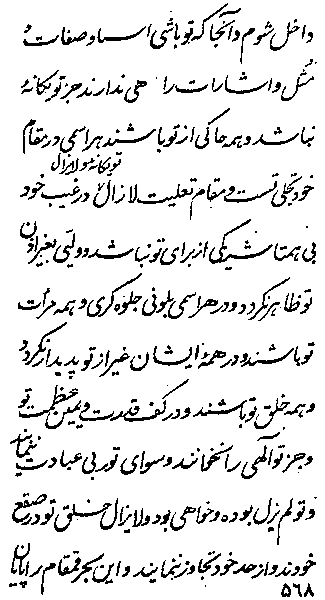 داخل شوم و آنجا که تو باشی اسماء و صفات و
مثل و اشارات را هی ندارند جز تو یگانهٔ
نباشد و همه حاکی از تو باشند هر اسمی در مقام
تو یگانه و لایزال
خود تجلی تست و مقام تعلیت لازال در غیب خود
بی همتا شریکی از برای تو نباشد و ولیی بغیر اذن
تو ظاهر نگردد و در هر اسمی بلونی جلوه کری و همه مرآت
تو باشند و در همهٔ ایشان غیر از تو پدیدار نگردد
و همه خلق تو باشند و در کف قدرت و یمین عظمت تو
و جز تو آلهی را نخوانند و سوای تو ربی عبادت ننمایند
و تو لم یزل بوده و خواهی بود و لایزال خلق تو در صقع
خودند و از حد خود تجاوز ننمایند و این بحر قمقام را پایان
۵۶۸